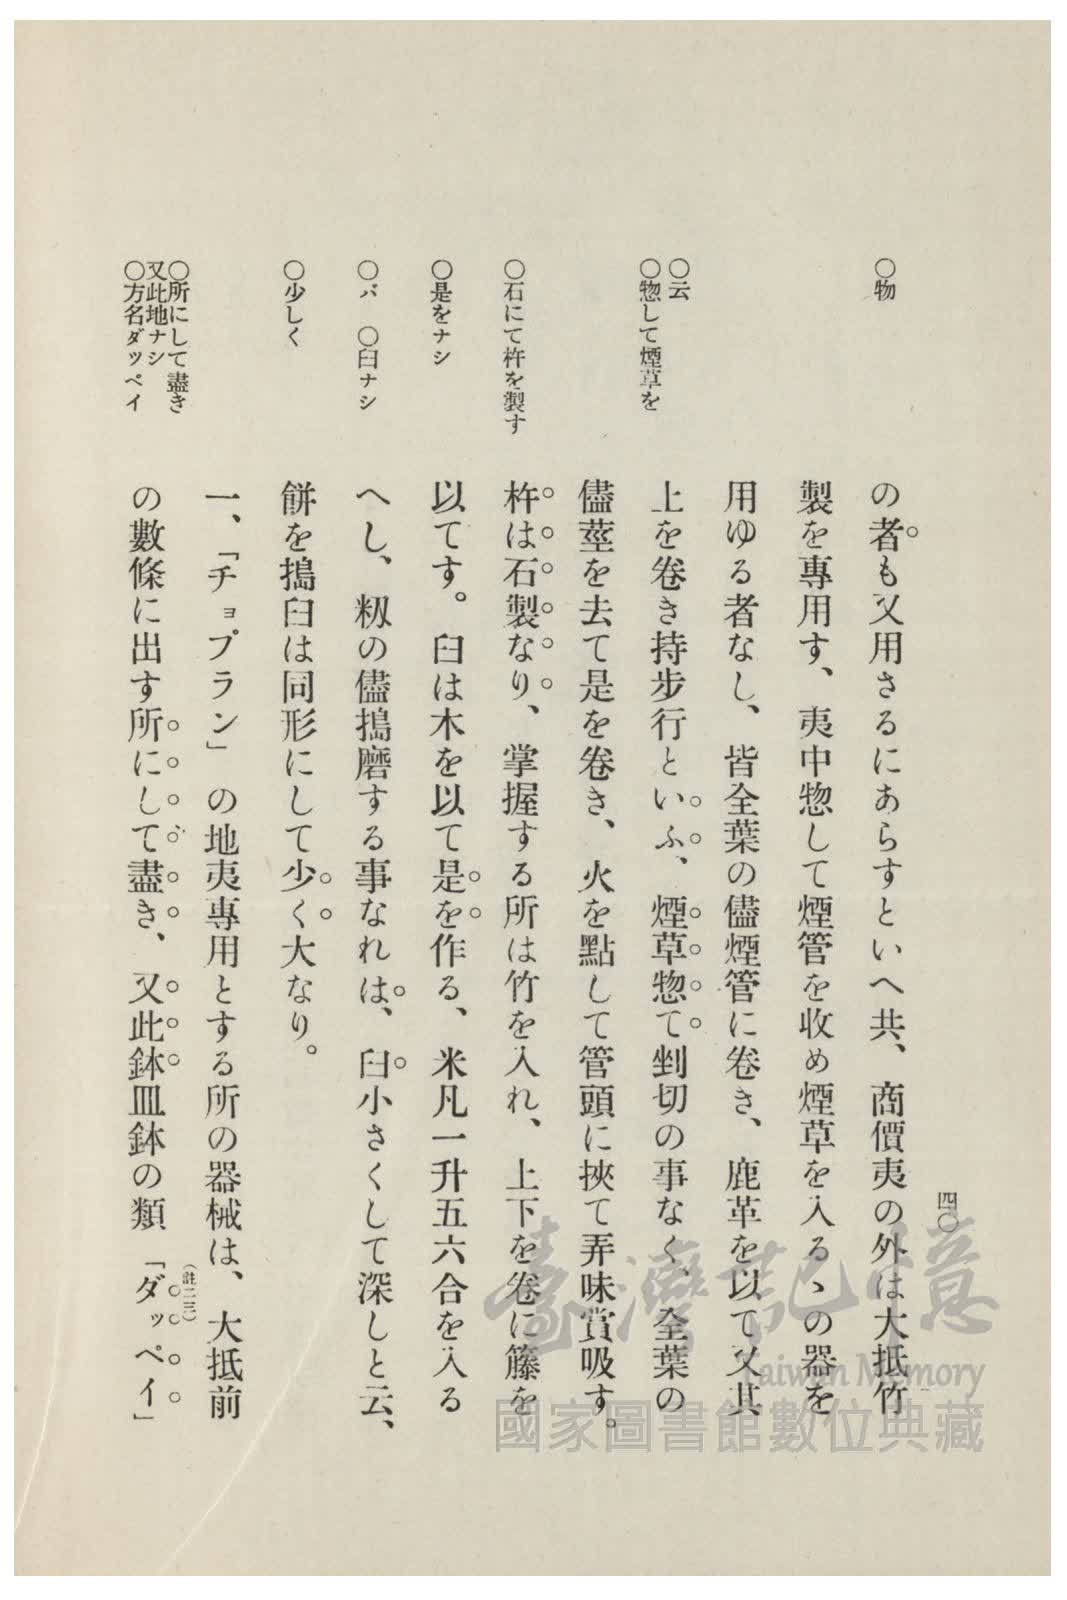 四〇
○物
○云
○惣して煙草を
○石にて杵を製す
○是をナシ
○バ　○臼ナシ
○少しく
○所にして盡き
又此地ナシ
○方名ダッペイ
の者も又用さるにあらすといへ共、商價夷の外は大抵竹
製を專用す、夷中惣して煙管を收め煙草を入るゝの器を
用ゆる者なし、皆全葉の儘煙管に卷き、鹿革を以て又其
上を卷き持步行といふ、煙草惣て剉切の事なく、全葉の
儘莖を去て是を卷き、火を點して管頭に挾て弄味賞吸す。
杵は石製なり、掌握する所は竹を入れ、上下を卷に籐を
以てす。臼は木を以て是を作る、米凡一升五六合を入る
へし、籾の儘搗磨する事なれは、臼小さくして深しと云、
餠を搗臼は同形にして少く大なり。
一、「チョプラン」の地夷專用とする所の器械は、大抵前
の數條に出す所にして盡き、又此鉢皿鉢の類「ダッペイ」
(註二三)
臺灣記憶
Taiwan Memory
國家圖書館數位典藏